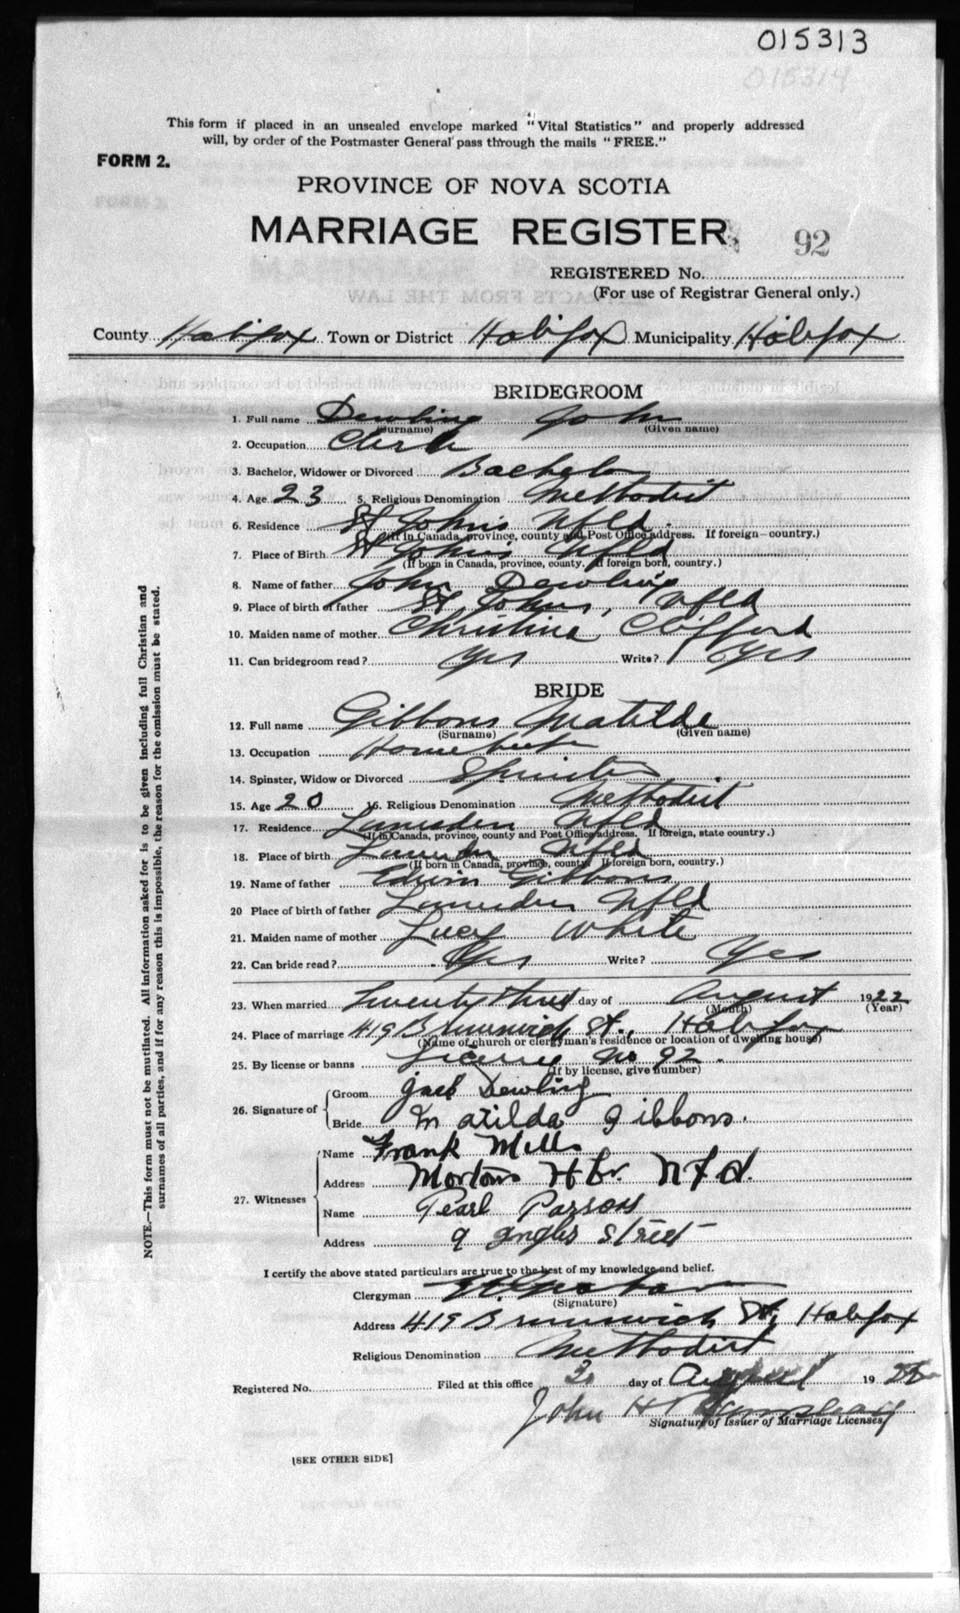 015313
015314
This form if placed in an unsealed envelope marked "Vital Statistics" and properly addressed
will, by order of the Postmaster General pass through the mails "FREE."
FORM 2.
PROVINCE OF NOVA SCOTIA
MARRIAGE REGISTER
92
REGISTERED No.
(For use of Registrar General only.)
County Halifax Town or District Halifax Municipality Halifax
BRIDEGROOM
1. Full name Dowling John
(Surname) (Given name)
2. Occupation Clerk
3. Bachelor, Widower or Divorced Bachelor
4. Age 23 5. Religious Denomination Methodist
6. Residence St John's Nfld.
(If in Canada, province, county and Post Office address. If foreign—country.)
7. Place of Birth St John's Nfld
(If born in Canada, province, county. If foreign born, country.)
8. Name of father John Dowling
9. Place of birth of father St. Johns, Nfld
10. Maiden name of mother Christina Clifford
11. Can bridegroom read? Yes Write? Yes
BRIDE
12. Full name Gibbons Matilda
(Surname) (Given name)
13. Occupation
14. Spinster, Widow or Divorced Spinster
15. Age 20 16. Religious Denomination Methodist
17. Residence Lumsden Nfld
(If in Canada, province, county and Post Office address. If foreign, state country.)
18. Place of birth Lumsden Nfld
(If born in Canada, province, county. If foreign born, country.)
19. Name of father Edwin Gibbons
20 Place of birth of father Lumsden Nfld
21. Maiden name of mother Lucy White
22. Can bride read? Yes Write? Yes
23. When married Twenty third day of August 1922
(Month) (Year)
24. Place of marriage 419 Brunswick St., Halifax
(Name of church or clergyman's residence or location of dwelling house)
25. By license or banns License No 92.
(If by license, give number)
26. Signature of Groom Jack Dowling
Bride Matilda Gibbons.
27. Witnesses Name Frank Mills
Address Mortons Hbr. Nfd.
Name Pearl Parsons
Address 9 Street
I certify the above stated particulars are true to the best of my knowledge and belief.
Clergyman
(Signature)
Address 419 Brunswick St, Halifax
Religious Denomination Methodist
Registered No. Filed at this office day of August 19 22
John H
Signature of Issuer of Marriage Licenses
[SEE OTHER SIDE]
NOTE.—This form must not be mutilated. All information asked for is to be given including full Christian and
surnames of all parties, and if for any reason this is impossible, the reason for the omission must be stated.